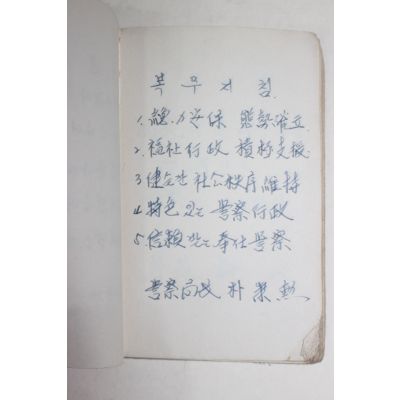 복무지침
1. 總力安保 態勢確立
2. 福祉行政 積極支援
3 健全한 社会秩序維持
4. 特色있는 警察行政
5. 信賴받는 奉仕警察
警察局長 朴